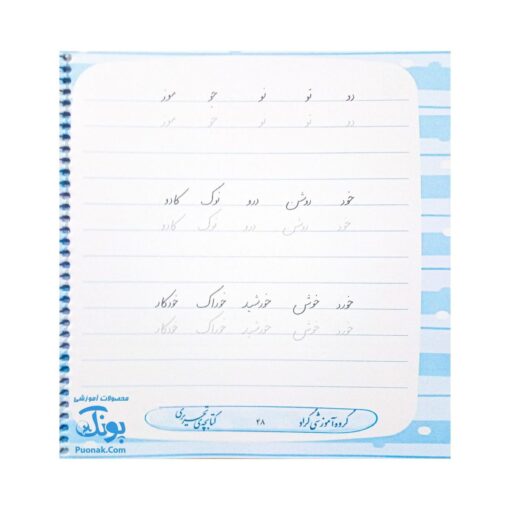 رو تو نو جو موز
رو تو نو جو موز
خود روش درو نوک کادو
خود روش درو نوک کادو
خورد خوش خورشید خوراک خودکار
خورد خوش خورشید خوراک خودکار
گروه آموزشی گراد ۲۸ کتابچه‌ی تحریری
محصولات آموزشی
پونک
Puonak.Com